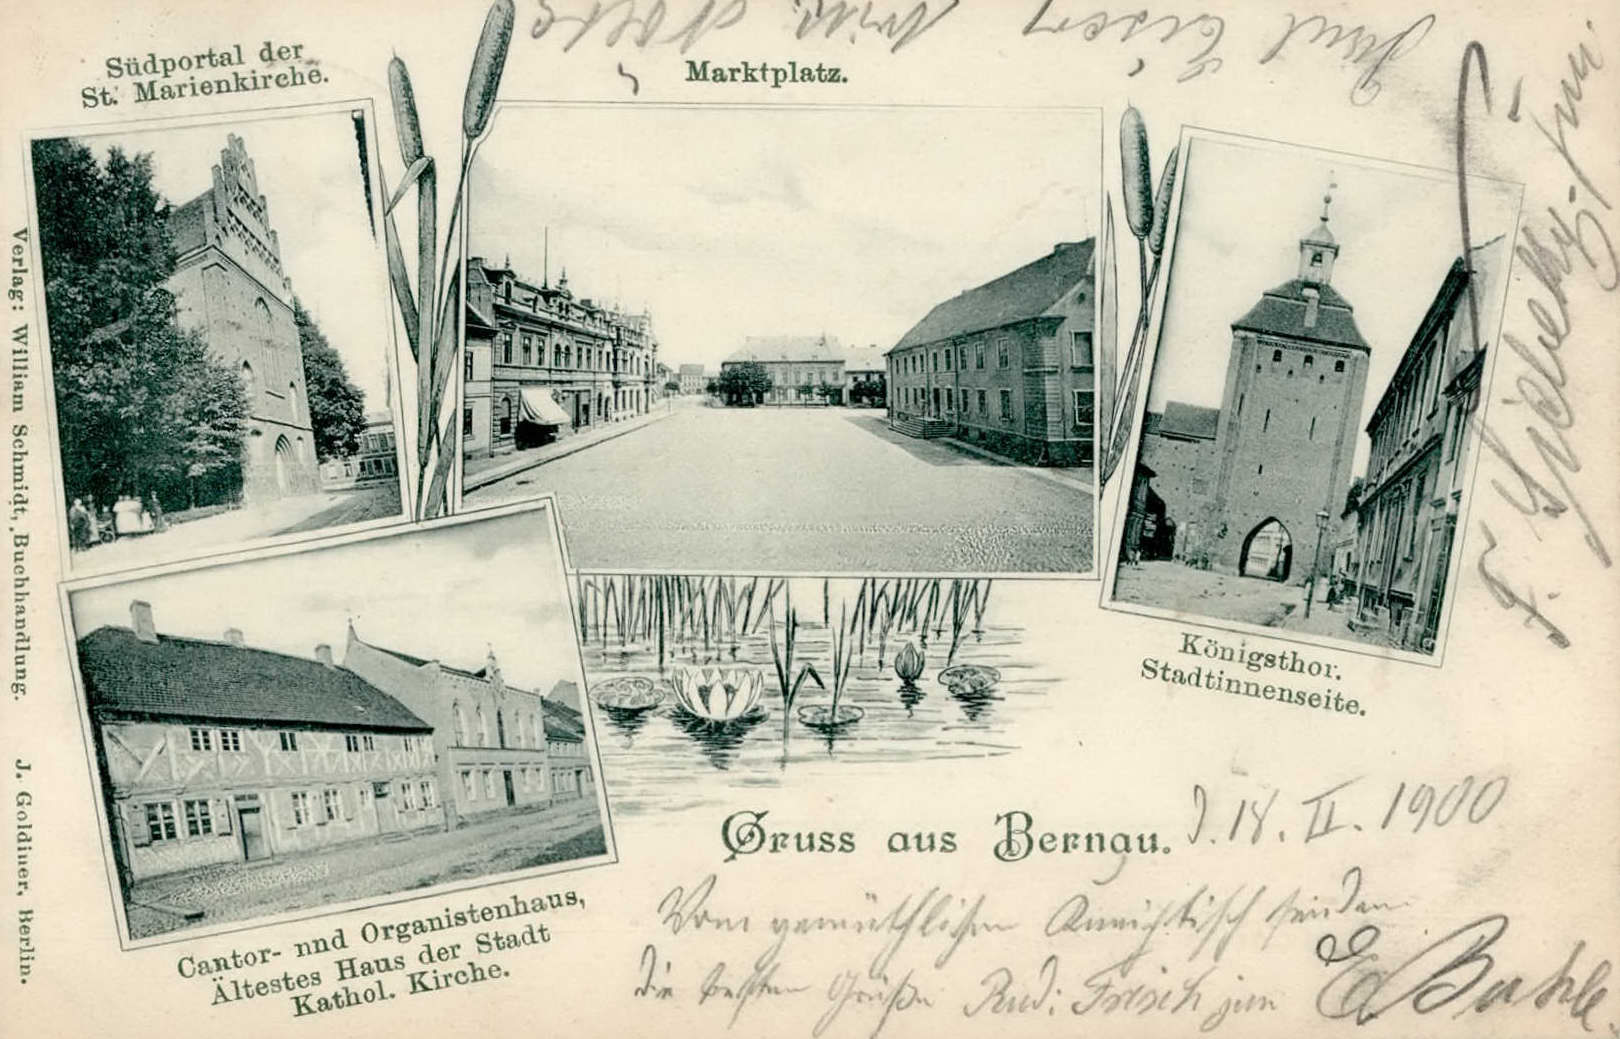 Südportal der
St. Marienkirche.
Marktplatz.
Königsthor.
Stadtinnenseite.
Cantor- nnd Organistenhaus,
Ältestes Haus der Stadt
Kathol. Kirche.
Gruss aus Bernau.
Verlag: William Schmidt, Buchhandlung. J. Goldiner, Berlin.
18. II. 1900
Vom gemüthlichen
die besten Grüße Rud: Frisch jun